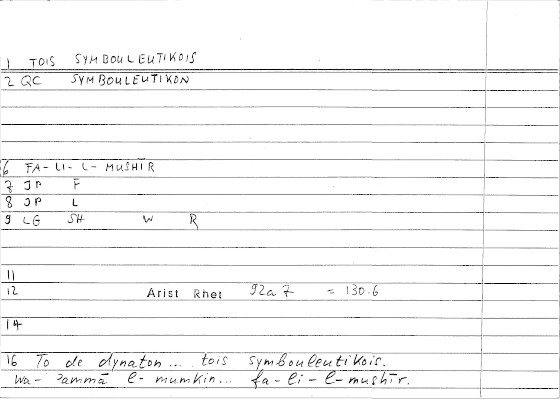 1 TOIS SYMBOULEUTIKOIS
2 QC SYMBOULEUTIKON
6 FA-LI-L-MUSHĪR
7 JP F
8 JP L
9 LG SH W R
11
12 Arist Rhet 92a 7 = 130.6
14
16 To de dynaton... tois symbouleutikois.
wa-ʾammā l-mumkin... fa-li-l-mushīr.